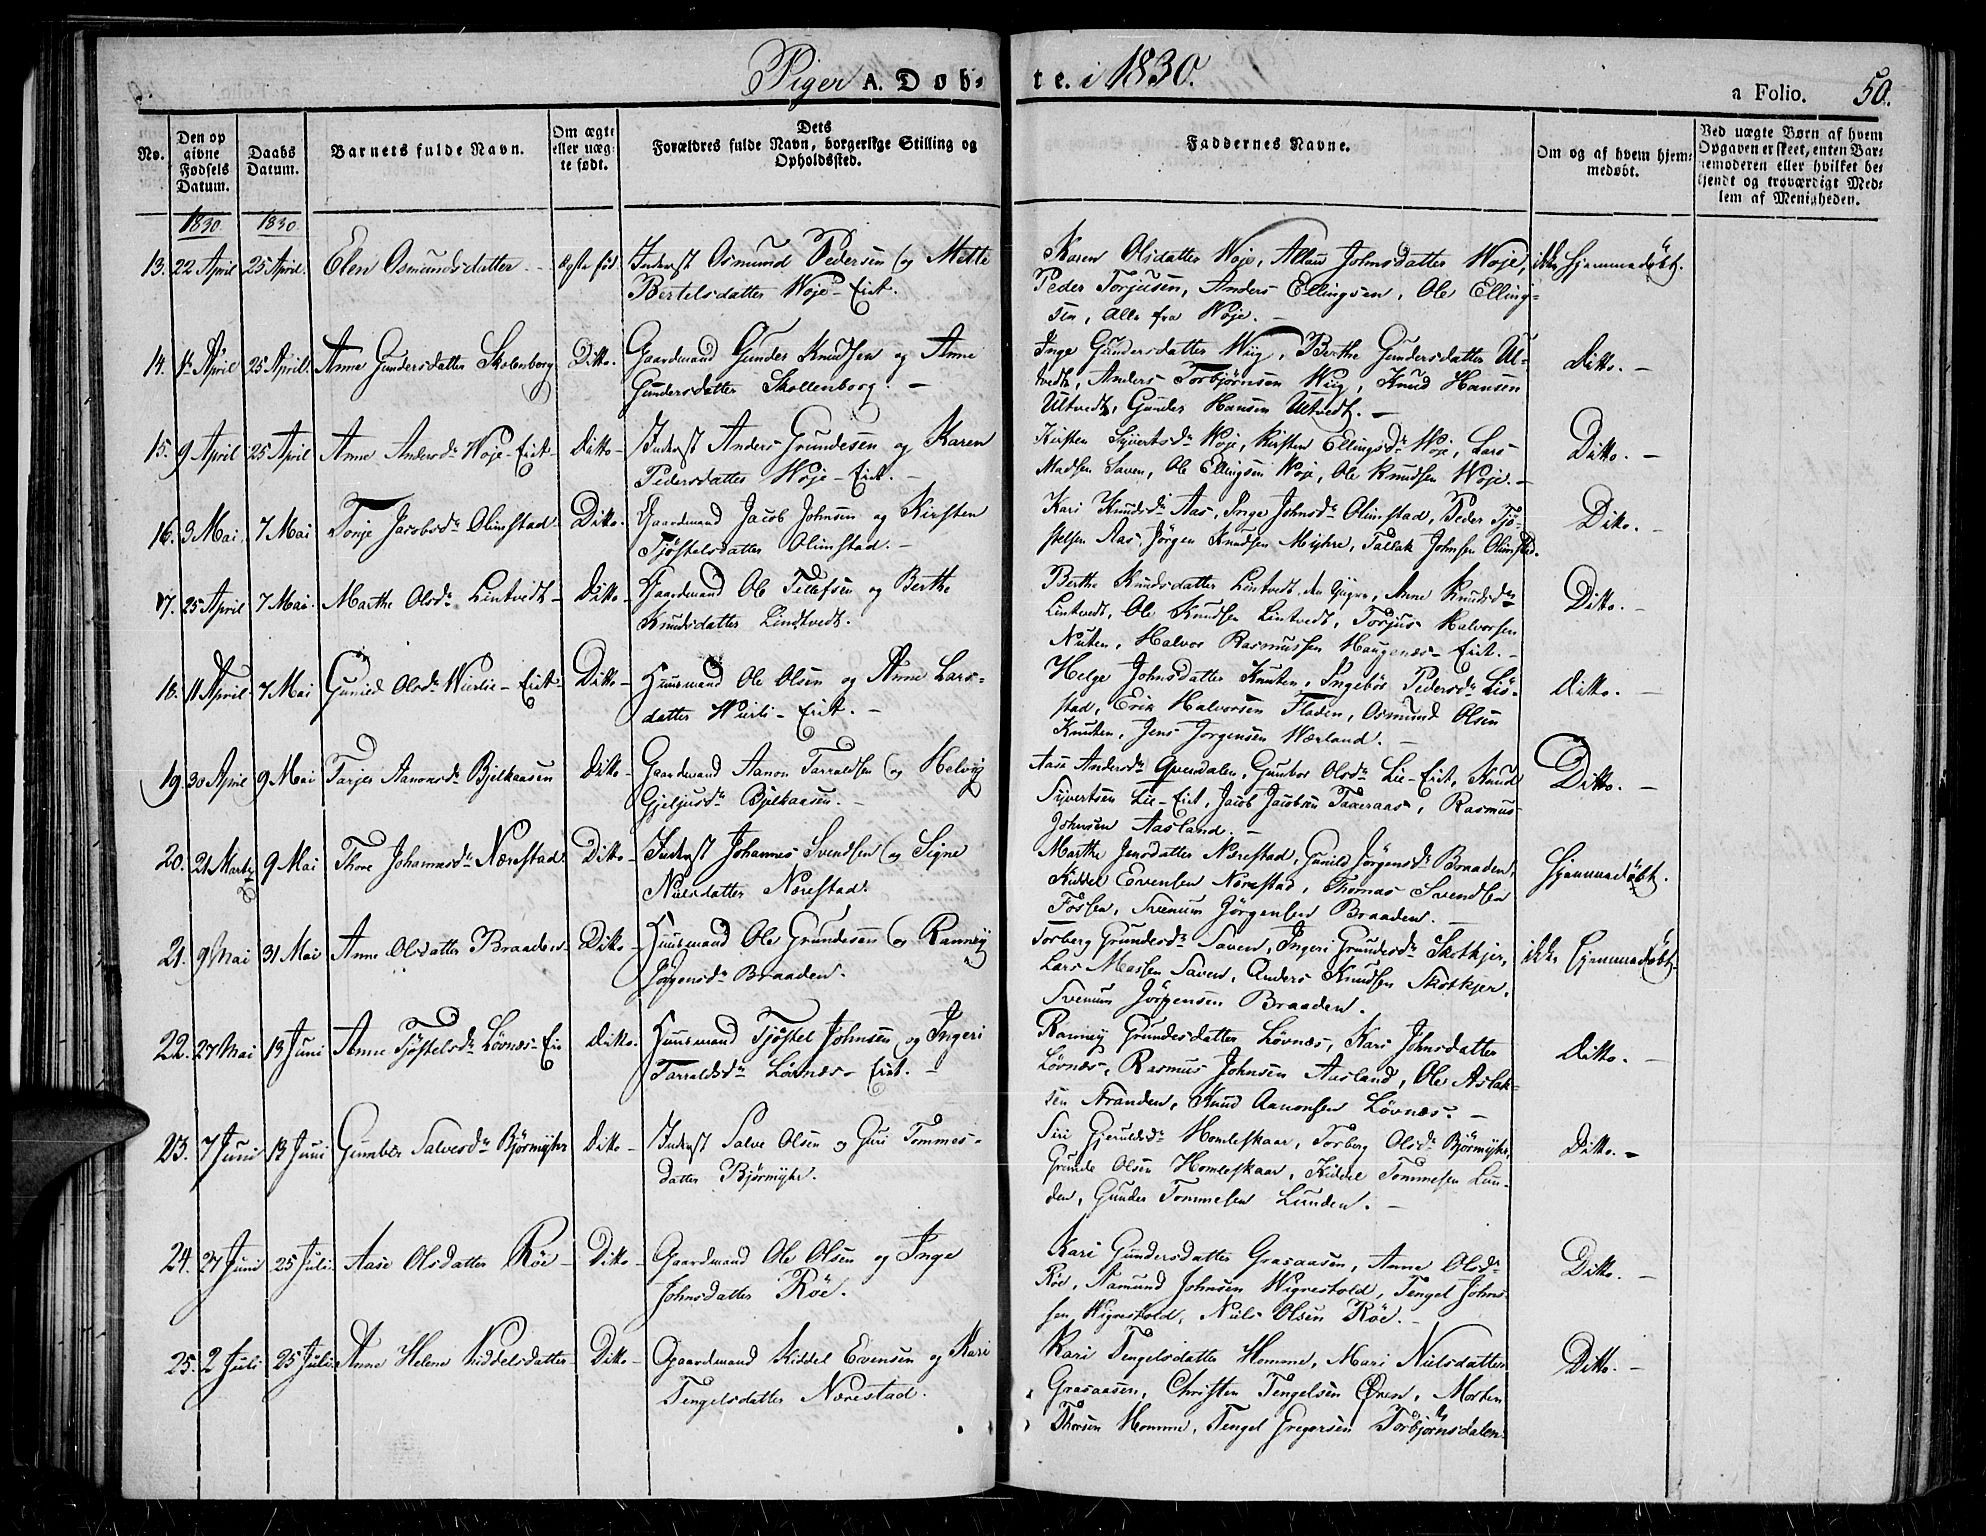 Piger A. Døb-
te. i 1830.
a Folio. 50.
No.
Den op
givne
Fødsels
Datum.
Daabs
Datum.
Barnets fulde Navn.
Om ægte
eller uæg-
te født.
Dets
Forældres fulde Navn, borgerlige Stilling og
Opholdssted.
Faddernes Navne.
Om og af hvem hjem-
medøbt.
Ved uægte Børn af hvem
Opgaven er skeet, enten Bar-
nemoderen eller hvilket be-
kjendt og troværdigt Med-
lem af Menigheden.
1830 1830
13. 22 April 25 April. Elen Osmundsdatter Ægte fød. Inderst Osmund Pedersen og Mette
Bertelsdatter Woje-Eiet.
Karen Olsdatter Woje, Johnsdatter Woje,
Peder Torjusen, Anders Ellingsen, Ole Elling-
sen, alle fra Woje.
ikke hjemmedøbt.
14. April 25 April. Anne Gundersdatter Skolenborg Ditto. Gaardmand Gunder Knudsen og Anne
Gundersdatter Skollenborg.
Inge Gundersdatter Wiig, Berthe Gundersdatter Ul-
tvedt, Anders Torbjörnsen Wiig, Knud Hansen
Ultvedt, Gunder Hansen Ultvedt.
Ditto.
15. 9 April 25 April Anne Andersdr Woje-Eiet Ditto Inderst Anders Grundesen og Karen
Pedersdatter Woje-Eiet.
Kirsten Syvertsdr Woje, Kirsten Ellingsdr Woje, Lars
Madsen Saven, Ole Ellingsen Woje, Ole Knudsen Woje.
Ditto.
16. 3 Mai. 7 Mai Tonje Jacobsdr Olimstad Ditto. Gaardmand Jacob Johnsen og Kirsten
Tjöstelsdatter Olimstad.
Kari Knudsdr Aas, Inge Johnsdr Olimstad, Peder Tjö-
stelsen Aas, Jörgen Knudsen Myhre, Tallak Johnsen Olimstad.
Ditto.
17. 25 April 7 Mai. Marthe Olsdr Lintvedt Ditto Gaardmand Ole Tellefsen og Berthe
Knudsdatter Lindtvedt.
Berthe Knudsdatter Lintvedt, den yngre, Anne Knudsdr
Lintvedt, Ole Knudsen Lintvedt, Torjus Halvorsen
Nuten, Halvor Rasmussen Haugenæs-Eiet.
Ditto.
18. 11 April 7 Mai Gunild Olsdr Wierlie-Eiet Ditto Huusmand Ole Olsen og Anne Lars-
datter Wierli-Eiet.
Helge Johnsdatter Knuten, Ingebör Pedersdr Liö-
stad, Erik Halvorsen Fladen, Osmund Olsen
Knuten, Jens Jorgensen Wærland.
Ditto.
19. 30 April 9 Mai Tarjer Aanonsdr Bjelkaasen Ditto Gaardmand Aanon Tarraldsen og Helvig
Gjeljusdr Bjelkaasen.
Aase Andersdr Qvendalen, Gunbor Olsdr Lie-Eiet, Knud
Syvertsen Lie-Eiet, Jacob Jacobsen Taxeraas, Rasmus
Johnsen Aasland.
Ditto.
20. 21 Marts 9 Mai Thore Johannesdr Nærestad Ditto Inderst Johannes Svendsen og Signe
Nielsdatter Nærestad.
Marthe Jensdatter Nærestad, Gunild Jörgensdr Braaden,
Kiddel Evensen Nærestad, Thomas Svendsen
Fossen, Svenum Jörgensen Braaden.
Hjemmedøbt.
21. 9 Mai 31 Mai Anne Olsdatter Braaden Ditto Huusmand Ole Grundesen og Ranney
Jörgensdr Braaden.
Torberg Grundesdr Saven, Ingeri Grundesdr Skotkjer,
Lars Massen Saven, Anders Knudsen Skotkjer,
Svenum Jörgensen Braaden.
ikke Hjemmedøbt.
22. 27 Mai 13 Juni Anne Tjöstelsdr Lövnæs-Eie Ditto. Huusmand Tjöstel Johnsen og Ingeri
Tarraldsdr Lövnæs-Eiet.
Ranney Grundesdatter Lövnæs, Kari Johnsdatter
Lövnæs, Rasmus Johnsen Aasland, Ole Aslak-
sen Stranden, Knud Aanonsen Lövnæs.
Ditto.
23. 7 Juni 13 Juni Gunbör Salvesdr Björmyhr Ditto Inderst Salve Olsen og Guri Tommes-
datter Björmyhr.
Siri Gjeruldsdr Homleskaar, Torberg Olsdr Björmyhr,
Grunde Olsen Homleskaar, Kiddel Tommesen Lun-
den, Gunder Tommesen Lunden.
Ditto.
24. 27 Juni 25 Juli. Aase Olsdatter Röe Ditto Gaardmand Ole Olsen og Inge
Johnsdatter Röe.
Kari Gundersdatter Grasaasen, Anne Olsdr
Röe, Aamund Johnsen Wigvestold, Tengel Johns-
sen Wigvestold, Niels Olsen Röe.
Ditto.
25. 2 Juli 25 Juli Anne Helene Kiddelsdatter Ditto Gaardmand Kiddel Evensen og Kari
Tengelsdatter Nærestad.
Kari Tengelsdatter Homme, Mari Nielsdatter
Grasaasen, Christen Tengelsen Øren, Morten
Thorsen Homme, Tengel Gregersen Torbjörnsdalen
Ditto.